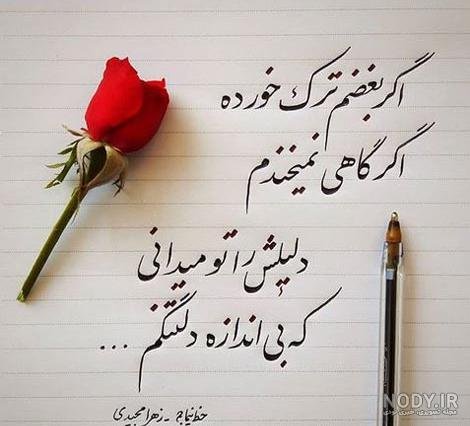 اگر بغضم ترک خورده
اگر گاهی نمیخندم
دلیلش را تو میدانی
که بی اندازه دلتنگم ...
زهرا مجیدی
NODY.IR